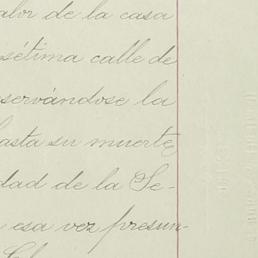 alor de la casa
sétima calle de
servándose la
hasta su muerte
dad de la Se-
esa vez presun-